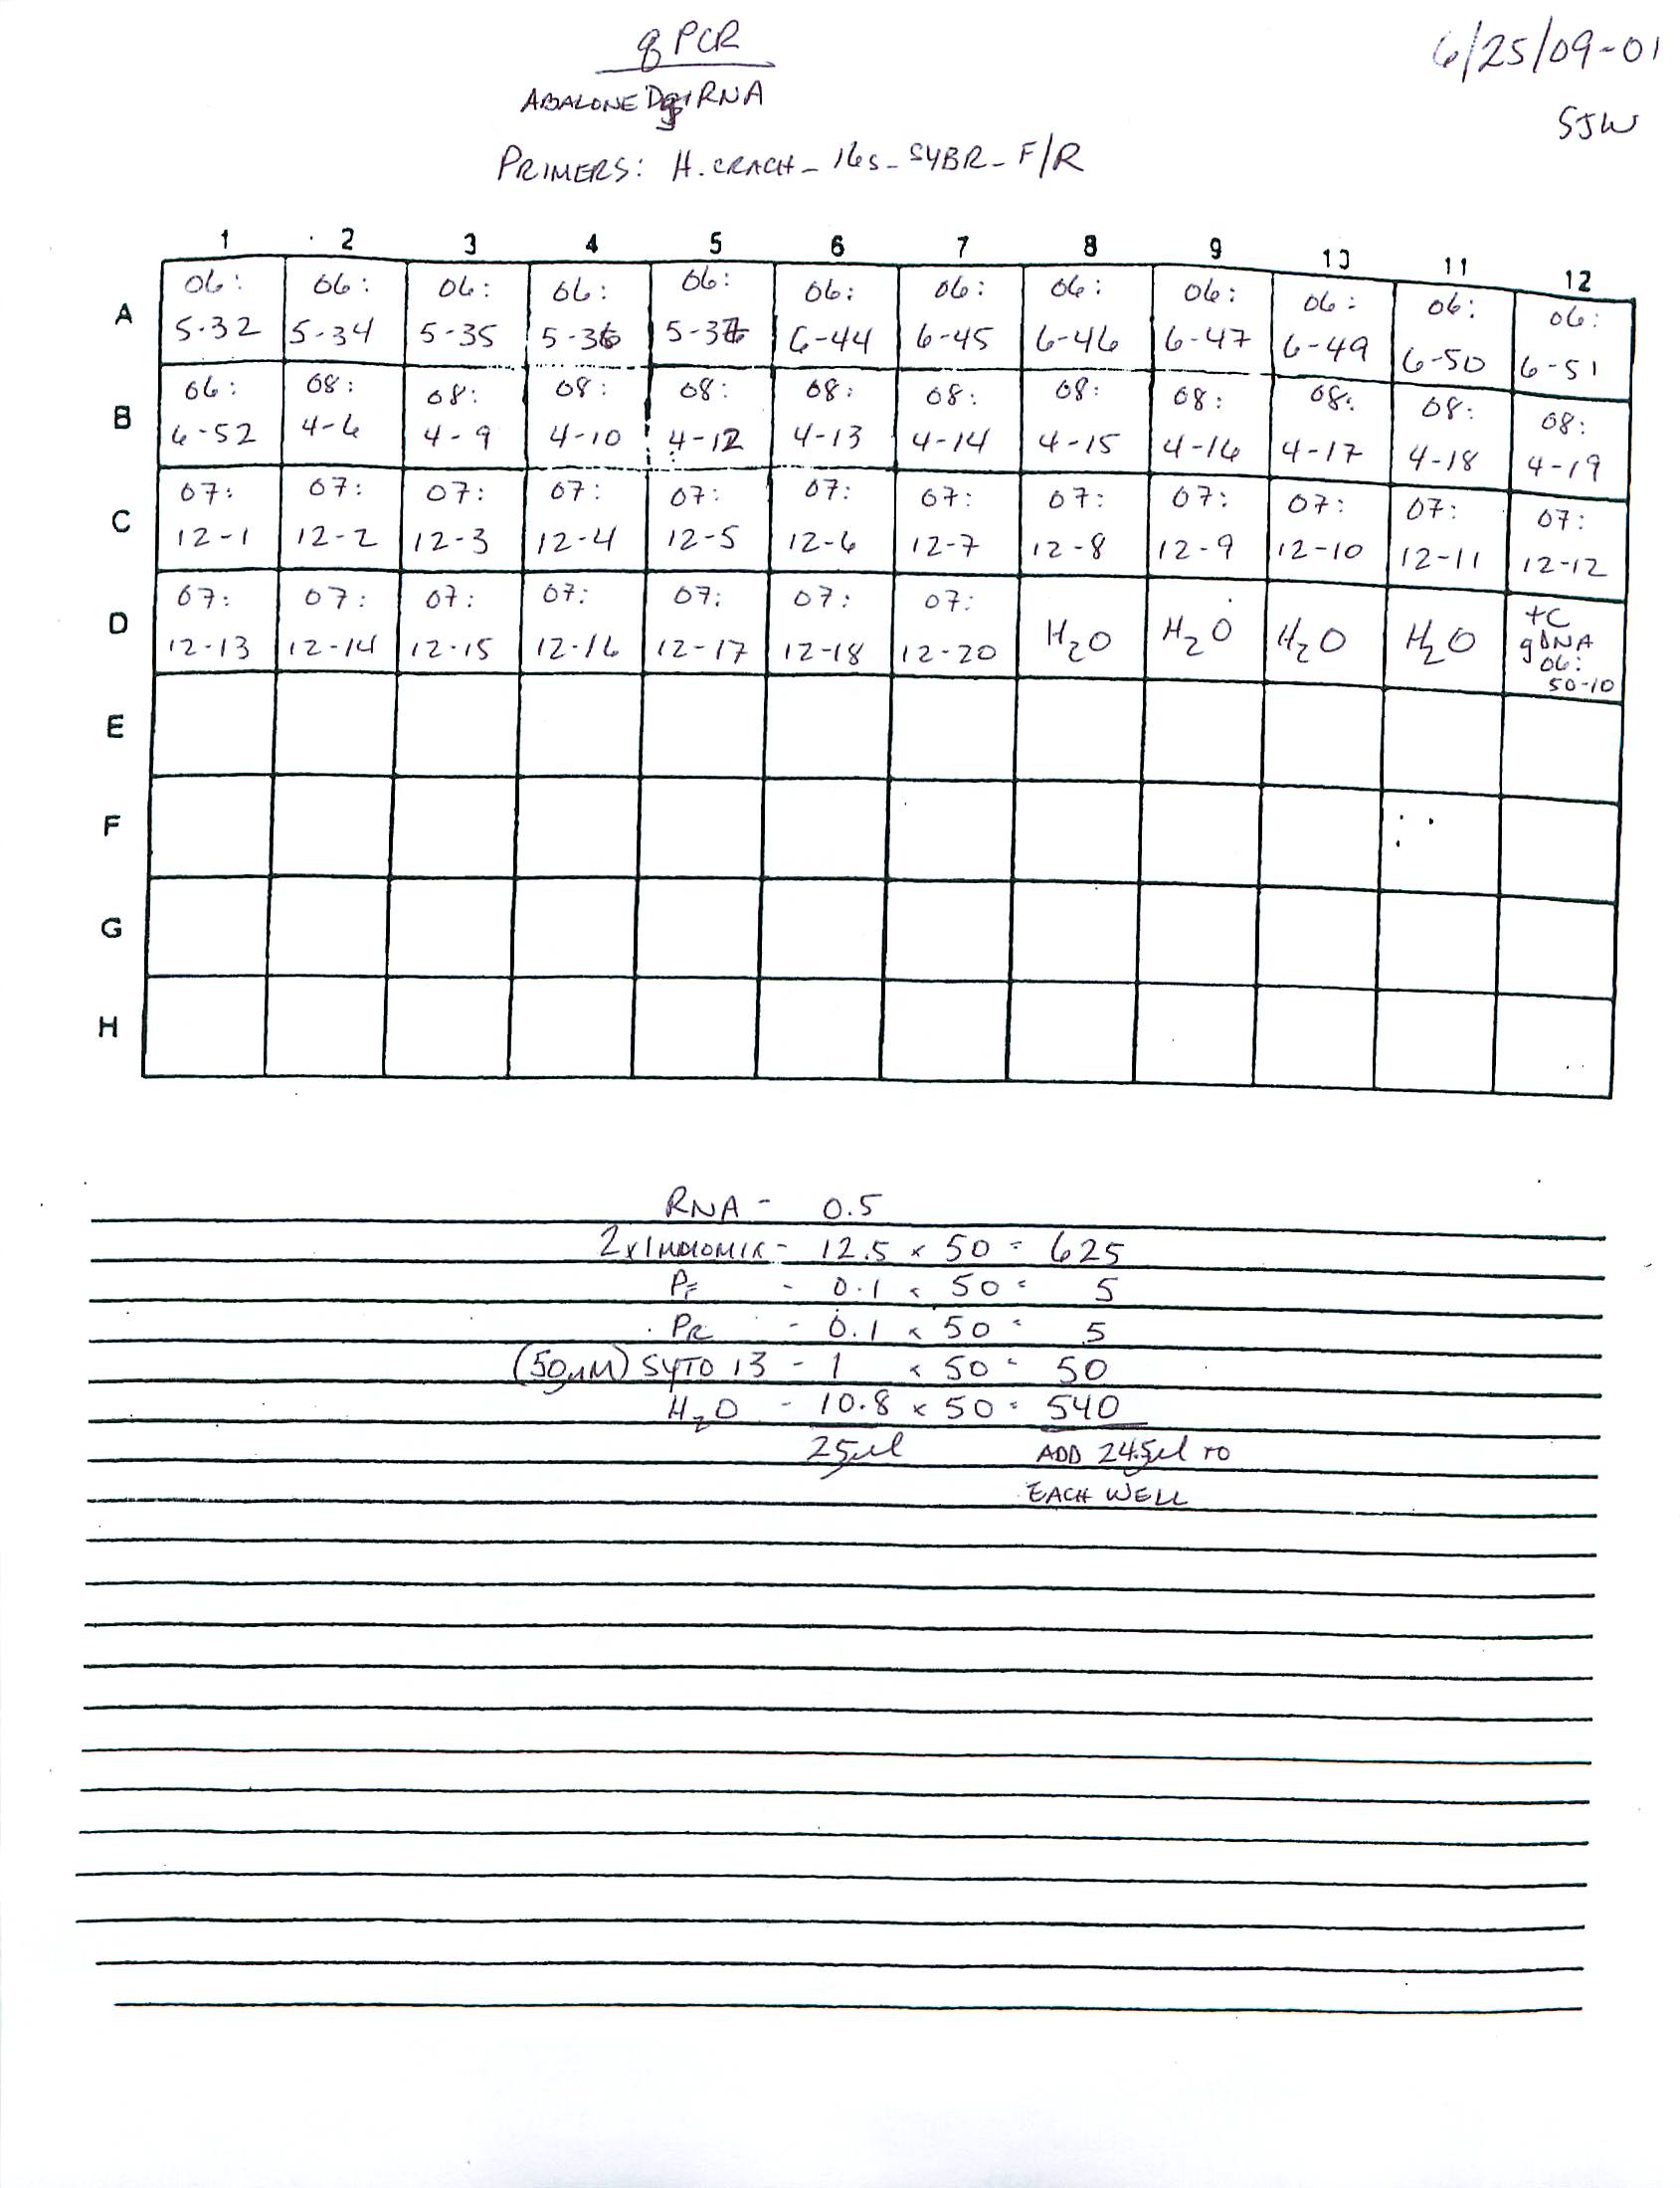 qPCR
6/25/09-01
SJW
ABALONE RNA
PRIMERS: H. CRACH_16s_SYBR_F/R
1 2 3 4 5 6 7 8 9 10 11 12
A 06: 5-32 06: 5-34 06: 5-35 06: 5-36 06: 06: 6-44 06: 6-45 06: 6-46 06: 6-47 06: 6-49 06: 6-50 06: 6-51
B 06: 6-52 08: 4-6 08: 4-9 08: 4-10 08: 4-12 08: 4-13 08: 4-14 08: 4-15 08: 4-16 08: 4-17 08: 4-18 08: 4-19
C 07: 12-1 07: 12-2 07: 12-3 07: 12-4 07: 12-5 07: 12-6 07: 12-7 07: 12-8 07: 12-9 07: 12-10 07: 12-11 07: 12-12
D 07: 12-13 07: 12-14 07: 12-15 07: 12-16 07: 12-17 07: 12-18 07: 12-20 H2O H2O H2O H2O +C gDNA 06: 50-10
E
F
G
H
RNA - 0.5
2x IMMOMIX - 12.5 x 50 = 625
PF - 0.1 x 50 = 5
PR - 0.1 x 50 = 5
(50µM) SYTO 13 - 1 x 50 = 50
H2O - 10.8 x 50 = 540
25µl ADD 24.5µl TO
EACH WELL